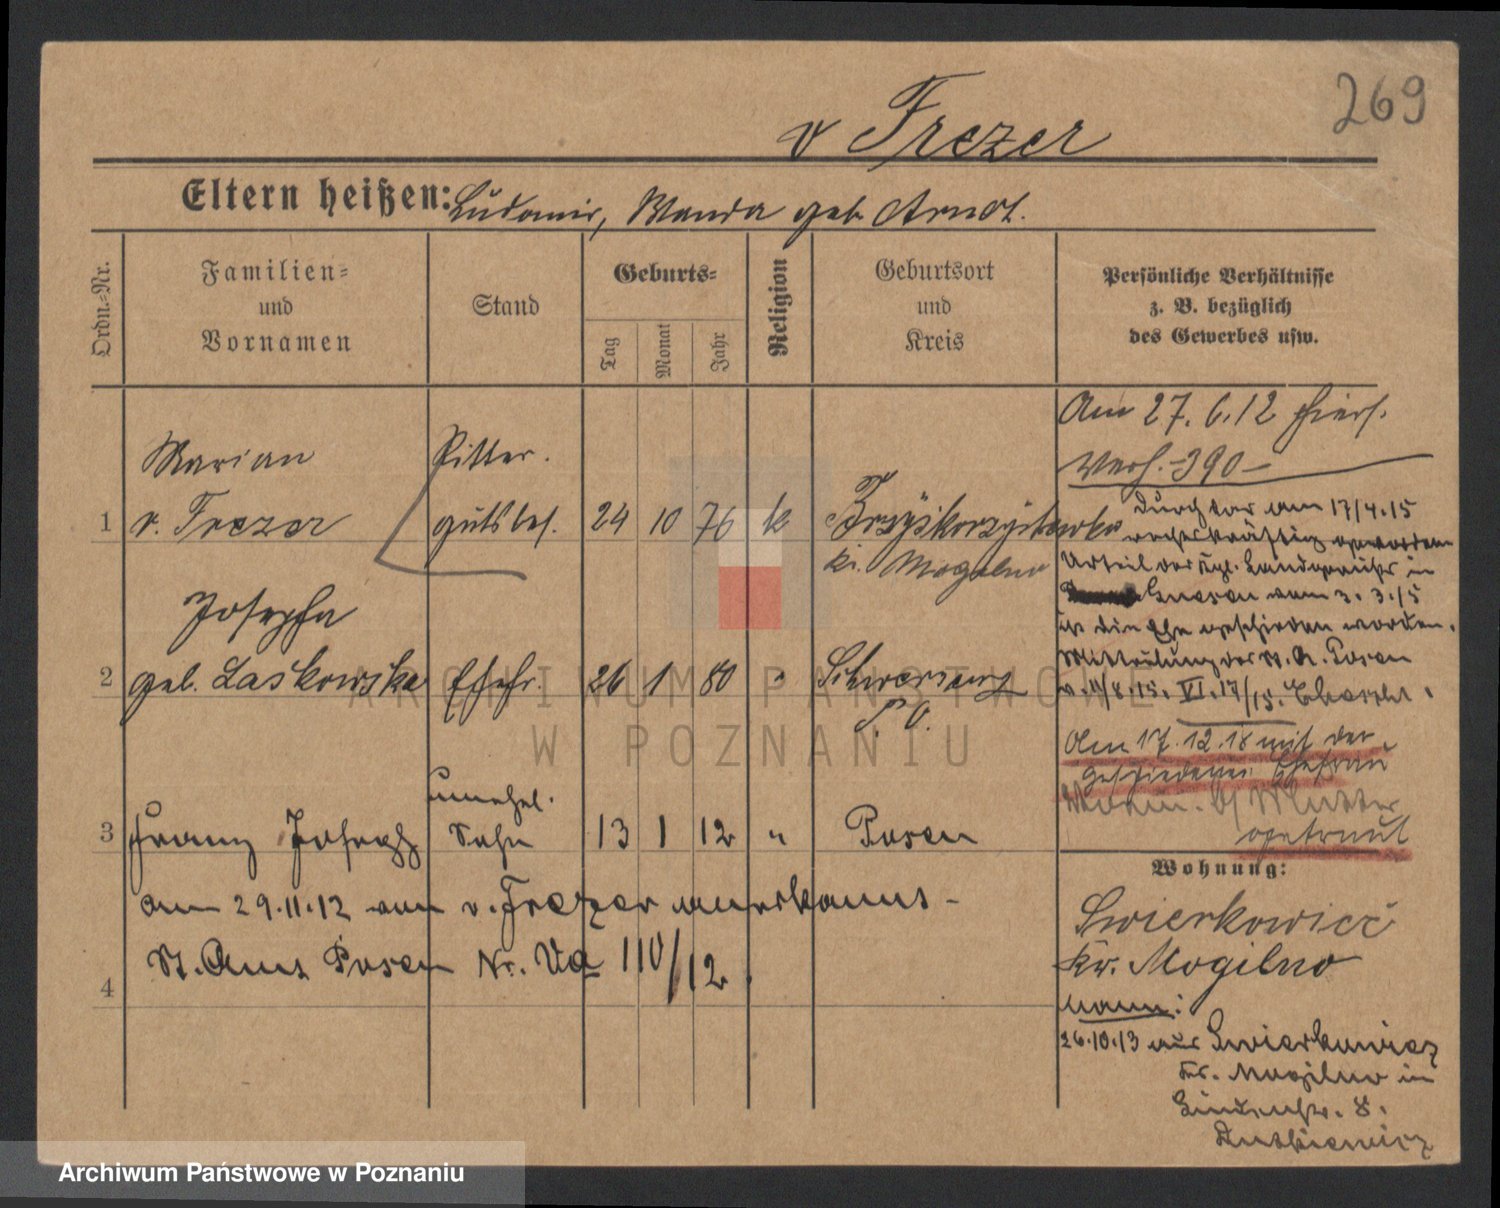 269
v Frezer
Eltern heißen: Ludomir, Wanda geb. Arndt.
Ordn.=Nr.
Familien=
und
Vornamen
Stand
Geburts=
Tag
Monat
Jahr
Religion
Geburtsort
und
Kreis
Persönliche Verhältnisse
z. B. bezüglich
des Gewerbes usw.
1
Marian
v. Frezer
Ritter.
gutsbes.
24 10 76 k
Kr. Mogilno
Am 27. 6. 12 hiers.
Verh. 390
Durch das am 17/4. 15
rechtskräftig gewordene
Urteil des Kgl. Landgerichts in
Gnesen vom 3. 3. 15
ist die Ehe geschieden worden.
Mitteilung des St. A. Posen
v. 11/8. 15. VI. 17/15.
2
Josepha
geb. Laskowska
Ehefr.
26 1 80 "
Schwersenz
P. O.
Am 17. 12. 18 mit der
geschiedenen Ehefrau
getraut
3
Franz Joseph
unehel.
Sohn
13 1 12 "
Posen
am 29. 11. 12 von v. Frezer anerkannt -
St. Amt Posen Nr. Ua 110/12.
4
Wohnung:
Swierkowiec
Kr. Mogilno
Mann:
26. 10. 13 aus Swierkowiez
Kr. Mogilno in
Lindenstr. 8.
Rutkiewicz
ARCHIWUM PAŃSTWOWE
W POZNANIU
Archiwum Państwowe w Poznaniu